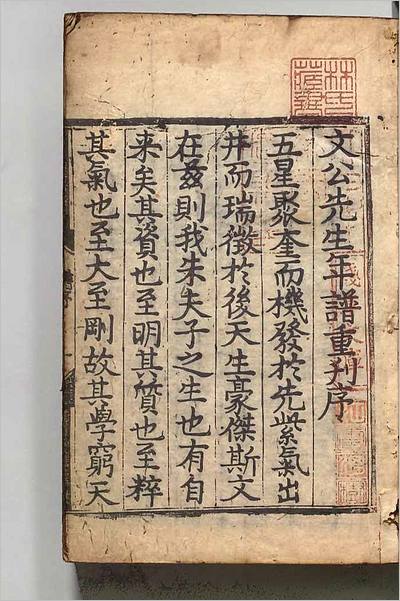 文公先生年譜重刋序
五星聚奎而機發於先紫氣出
井而瑞徵於後天生豪傑斯文
在兹則我朱夫子之生也有自
来矣其資也至明其質也至粹
其氣也至大至剛故其學窮天